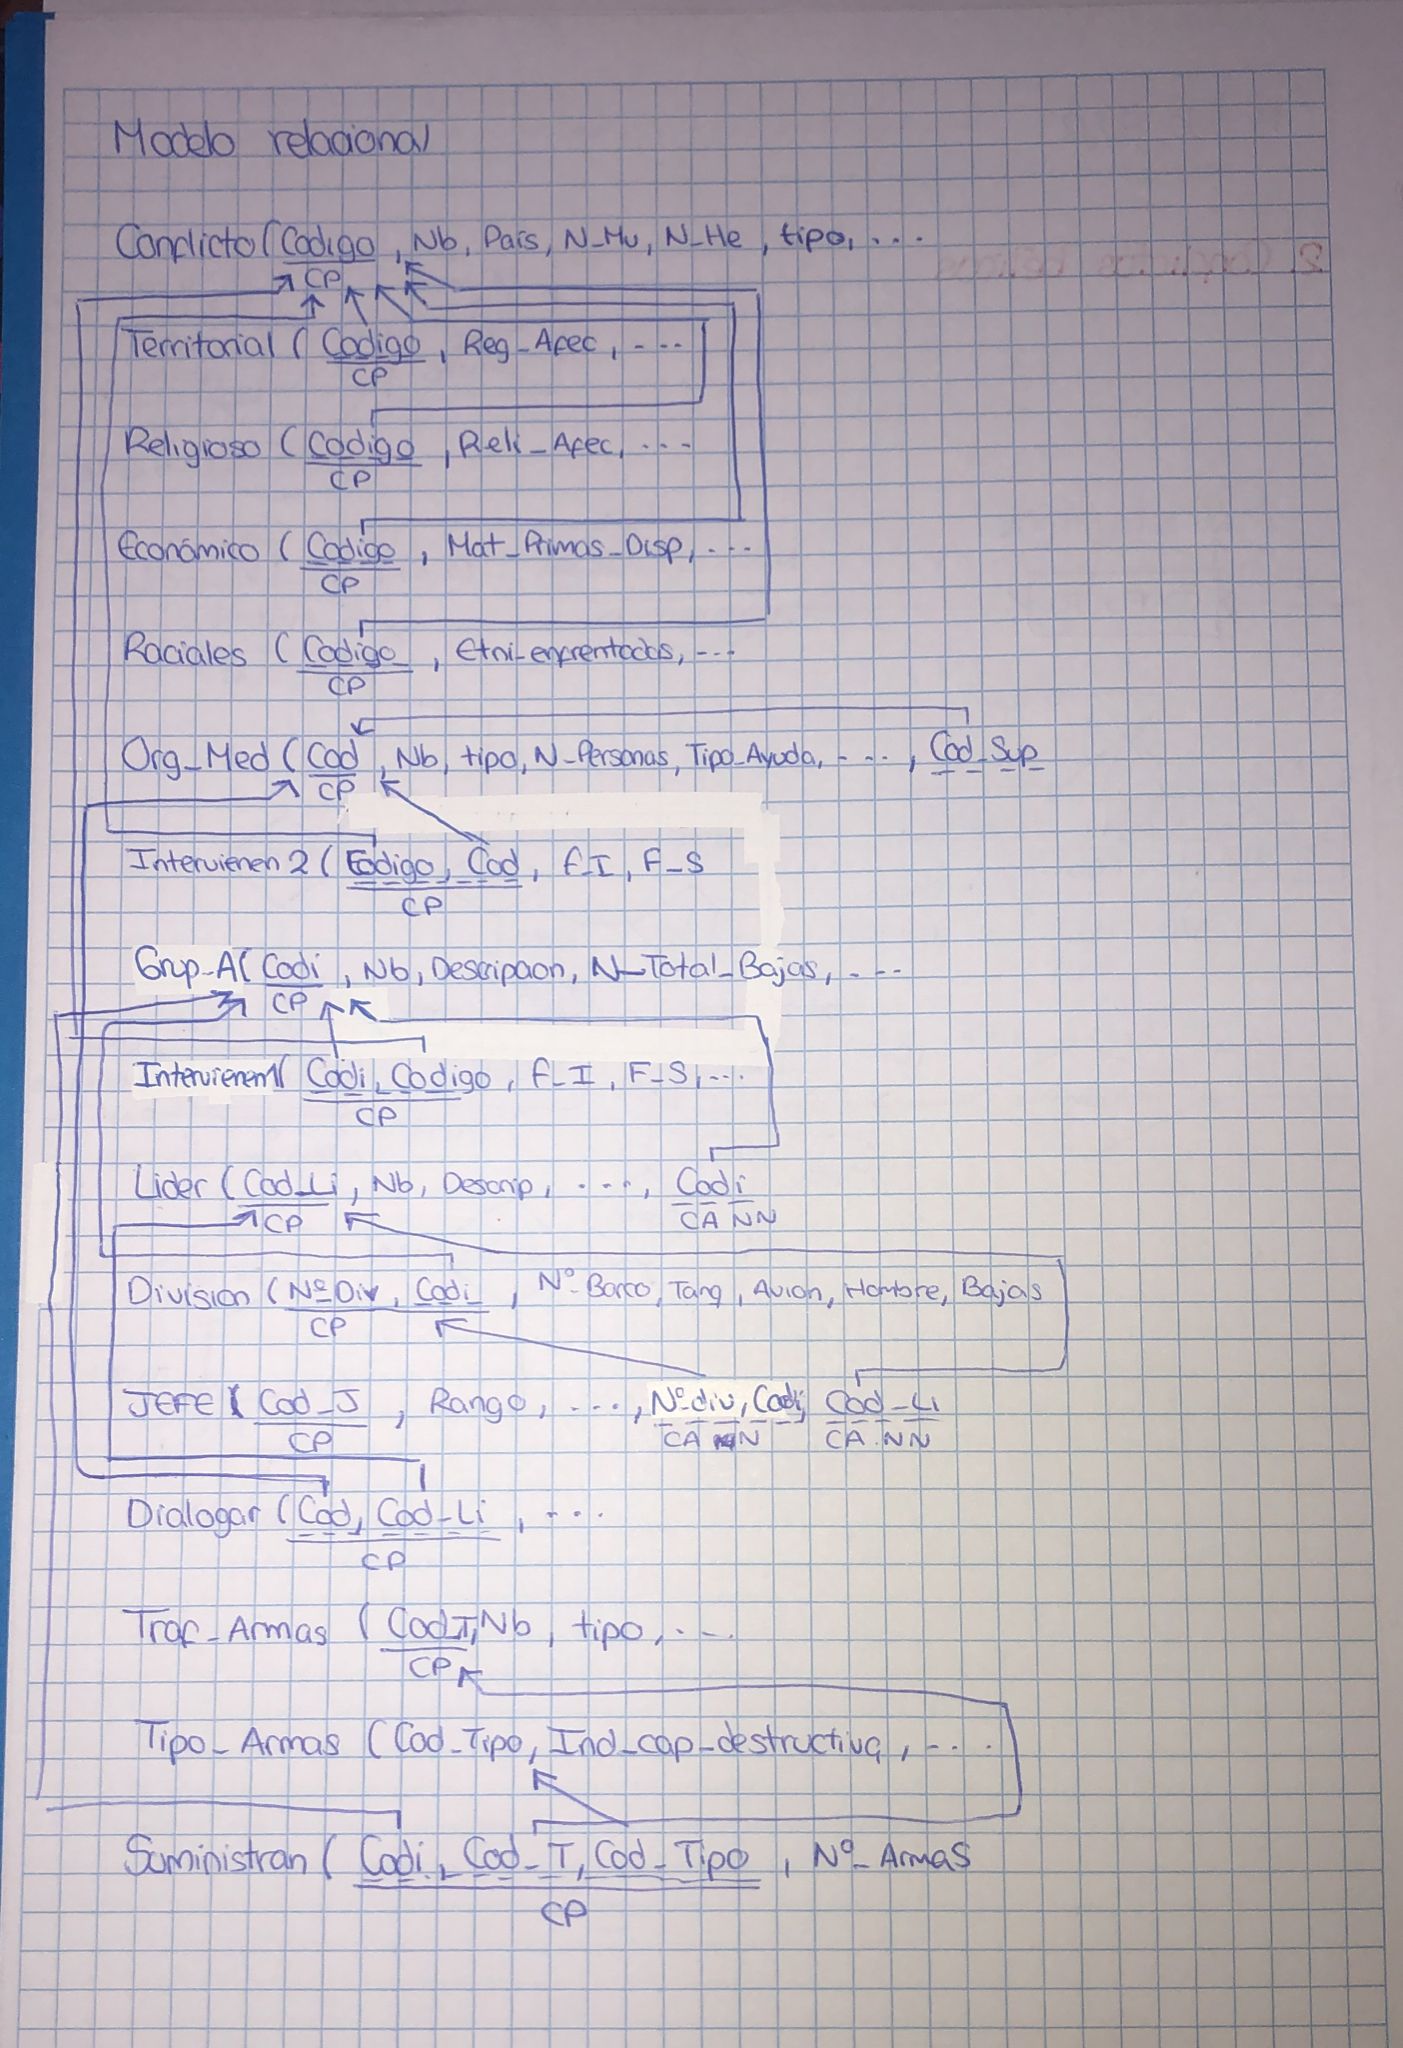 Modelo relacional
Conflicto (Codigo, Nb, Pais, N_Mu, N_He, tipo, ...
CP
Territorial (Codigo, Reg_Afec, ...
CP
Religioso (Codigo, Reli_Afec, ...
CP
Económico (Codigo, Mat_Primas_Disp, ...
CP
Raciales (Codigo, Etni_enfrentados, ...
CP
Org_Med (Cod, Nb, tipo, N_Personas, Tipo_Ayuda, ..., Cod_Sup
CP
Intervienen 2 (Codigo, Cod, F_I, F_S
CP
Grup_A (Codi, Nb, Descripcion, N_Total_Bajas, ...
CP
Intervienen1 (Codi, Codigo, F_I, F_S, ...
CP
Lider (Cod_Li, Nb, Descrip, ...., Codi
CP CA NN
Division (Nº Div, Codi, Nº Barco, Tanq, Avion, Hombre, Bajas
CP
JEFE (Cod_J, Rango, ..., Nº div, Codi, Cod_Li
CP CA NN CA NN
Dialogar (Cod, Cod_Li, ...
CP
Traf_Armas (Cod_T, Nb, tipo, ...
CP
Tipo_Armas (Cod_Tipo, Ind_cap_destructiva, ...
Suministran (Codi, Cod_T, Cod_Tipo, Nº_Armas
CP